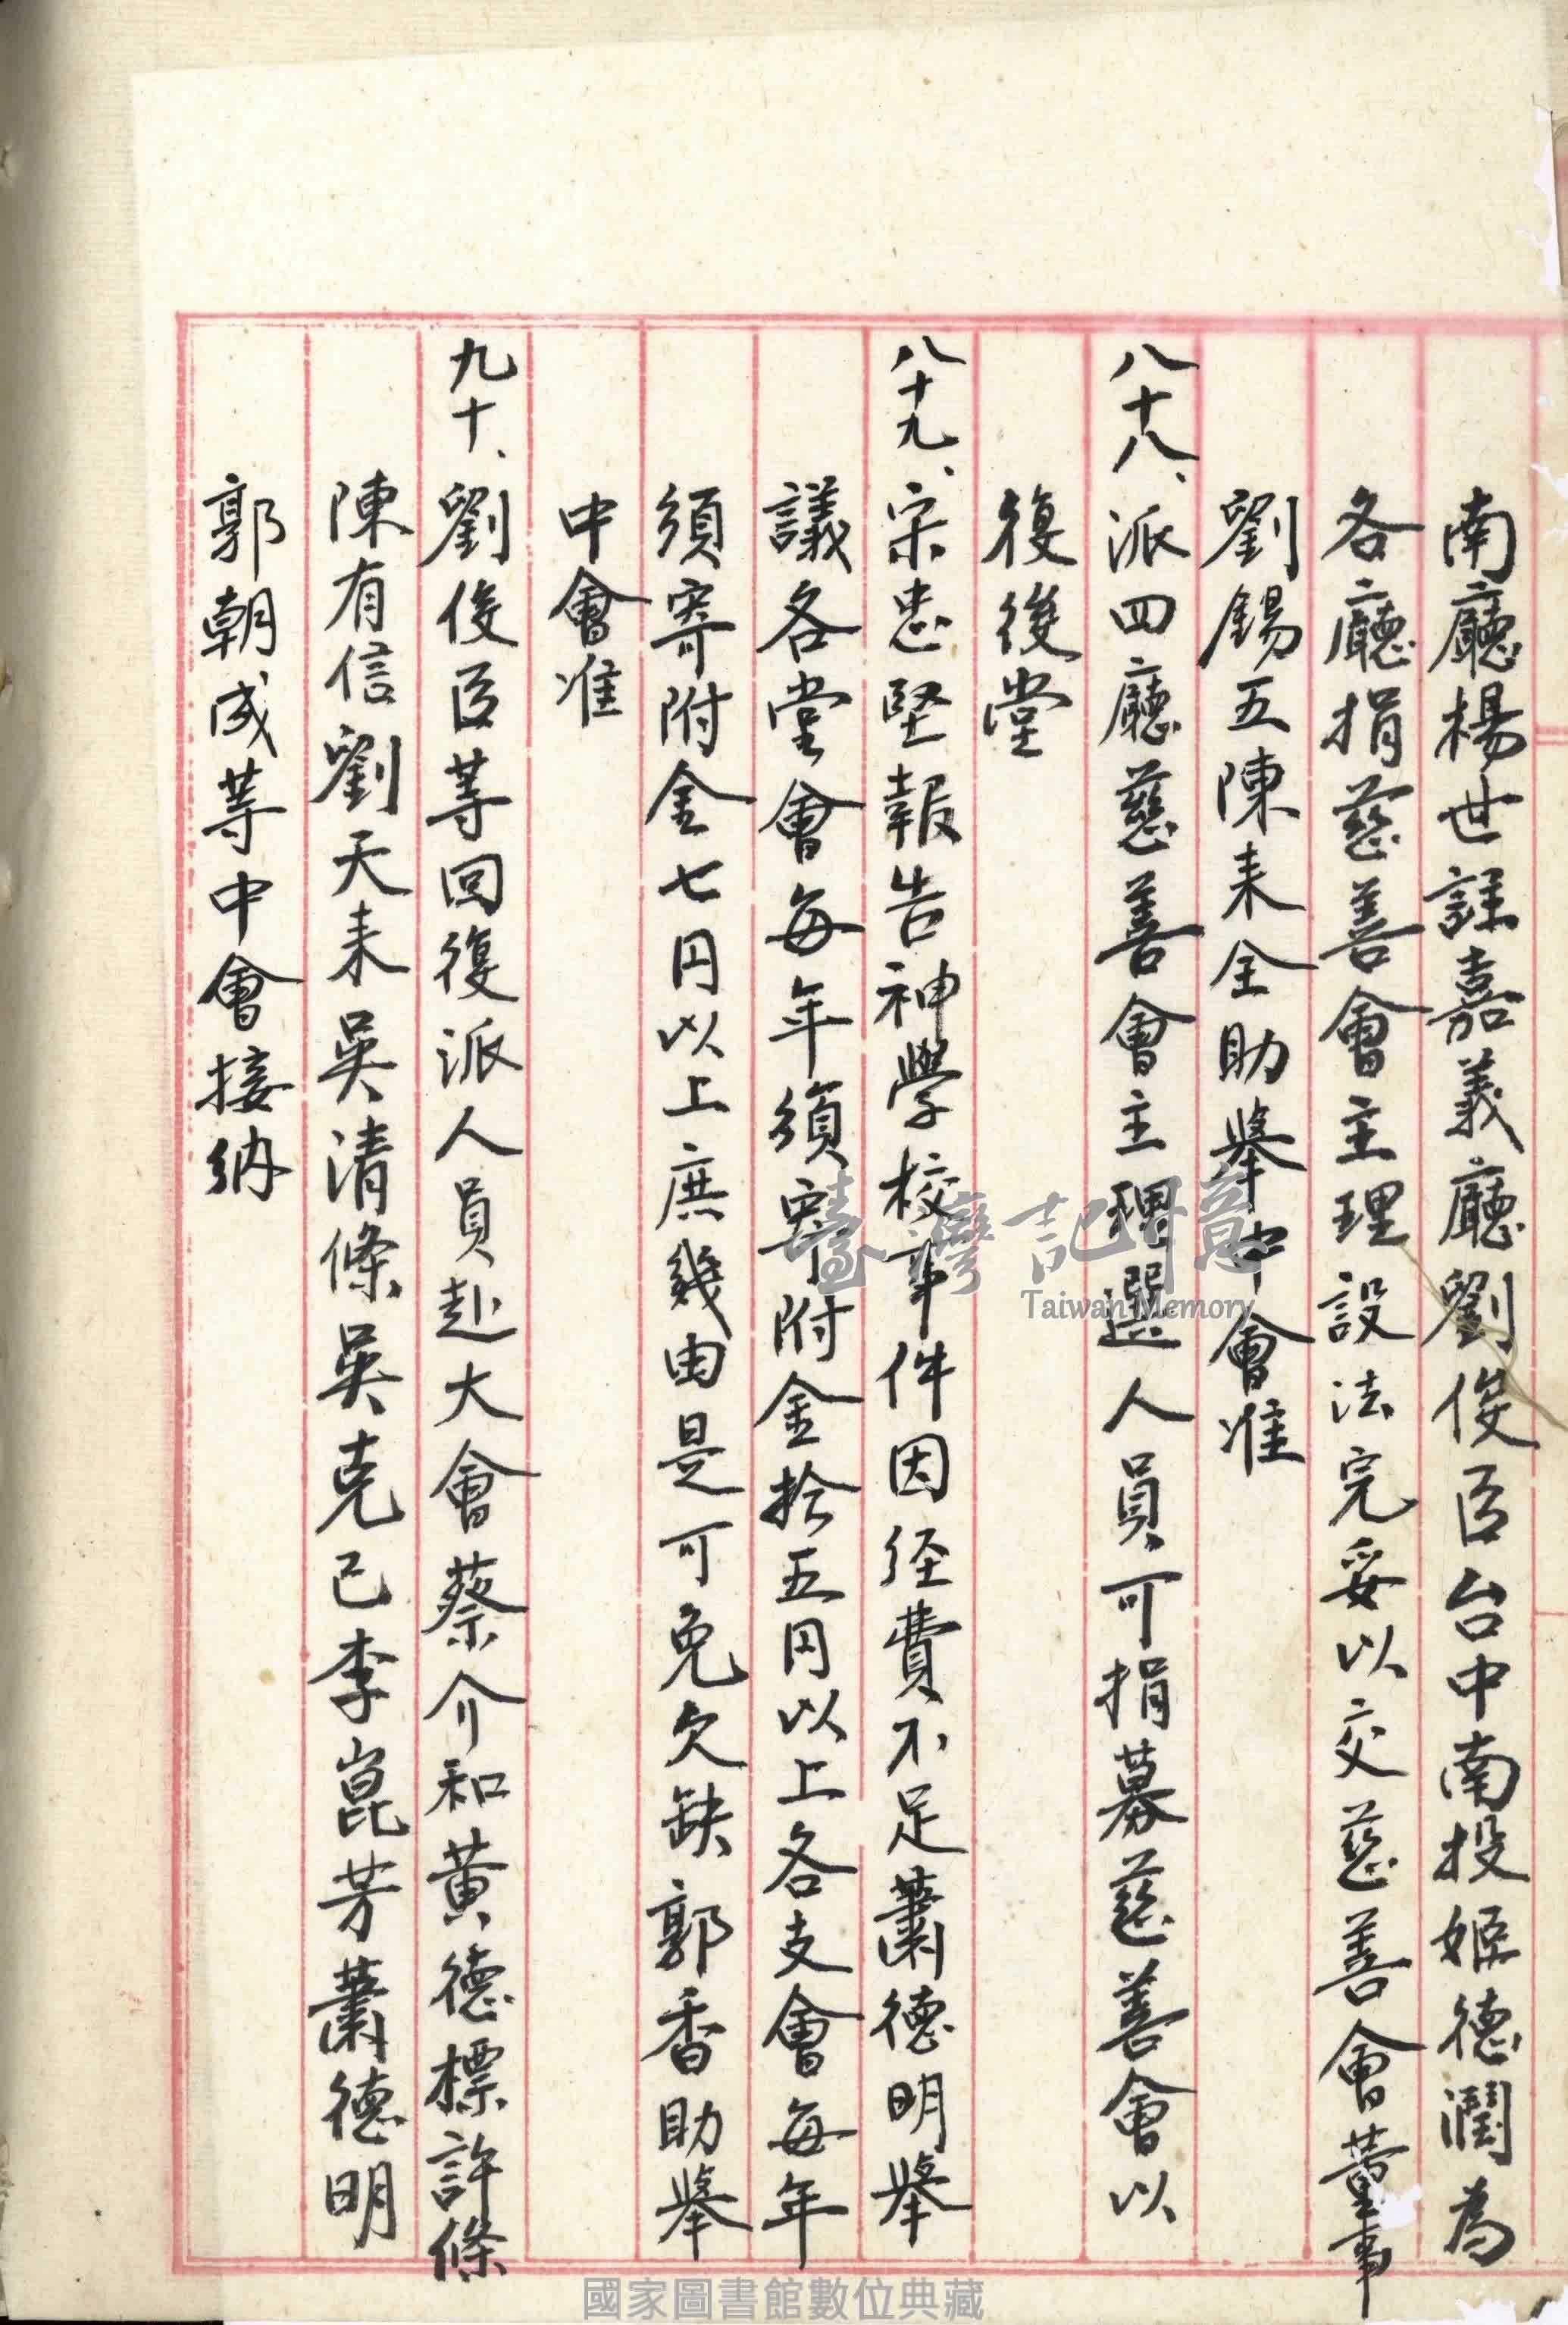 南廳楊世註嘉義廳劉俊臣台中南投姬德潤為
各廳捐慈善會主理設法完妥以交慈善會董事
劉錫五陳来全助舉中會准
八十八、派四廳慈善會主理選人員可捐募慈善會以
復後堂
八十九、宋忠堅報告神學校事件因経費不足蕭德明舉
議各堂會每年須寄附金拾五円以上各支會每年
須寄附金七円以上庶幾由是可免欠缺郭香助舉
中會准
九十、劉俊臣等回復派人員赴大會蔡介和黃德標許條
陳有信劉天来吳清條吳克己李崑芳蕭德明
郭朝成等中會接納
臺灣記憶
Taiwan Memory
國家圖書館數位典藏